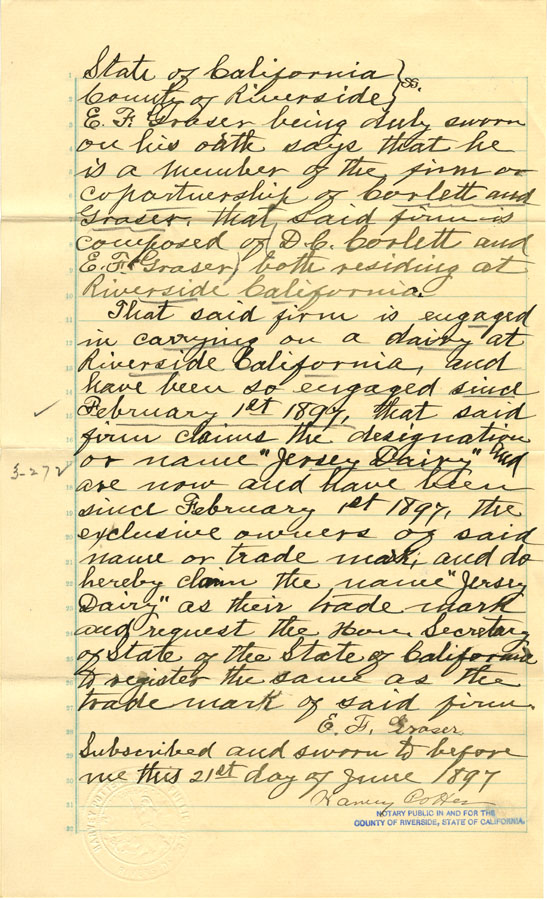 State of California } ss.
County of Riverside }
E. F. Graser being duly sworn
on his oath says that he
is a member of the firm or
copartnership of Corlett and
Graser, that said firm is
composed of (D. C. Corlett and
E. F. Graser) both residing at
Riverside California.
That said firm is engaged
in carrying on a dairy at
Riverside California, and
have been so engaged since
February 1st 1897, that said
firm claims the designation
or name "Jersey Dairy" and
are now and have been
since February 1st 1897, the
exclusive owners of said
name or trade mark, and do
hereby claim the name "Jersey
Dairy" as their trade mark
and request the Hon. Secretary
of State of the State of California
to register the same as the
trade mark of said firm.
E. F. Graser
Subscribed and sworn to before
me this 21st day of June 1897
Harvey Potter
NOTARY PUBLIC IN AND FOR THE
COUNTY OF RIVERSIDE, STATE OF CALIFORNIA.
3-272